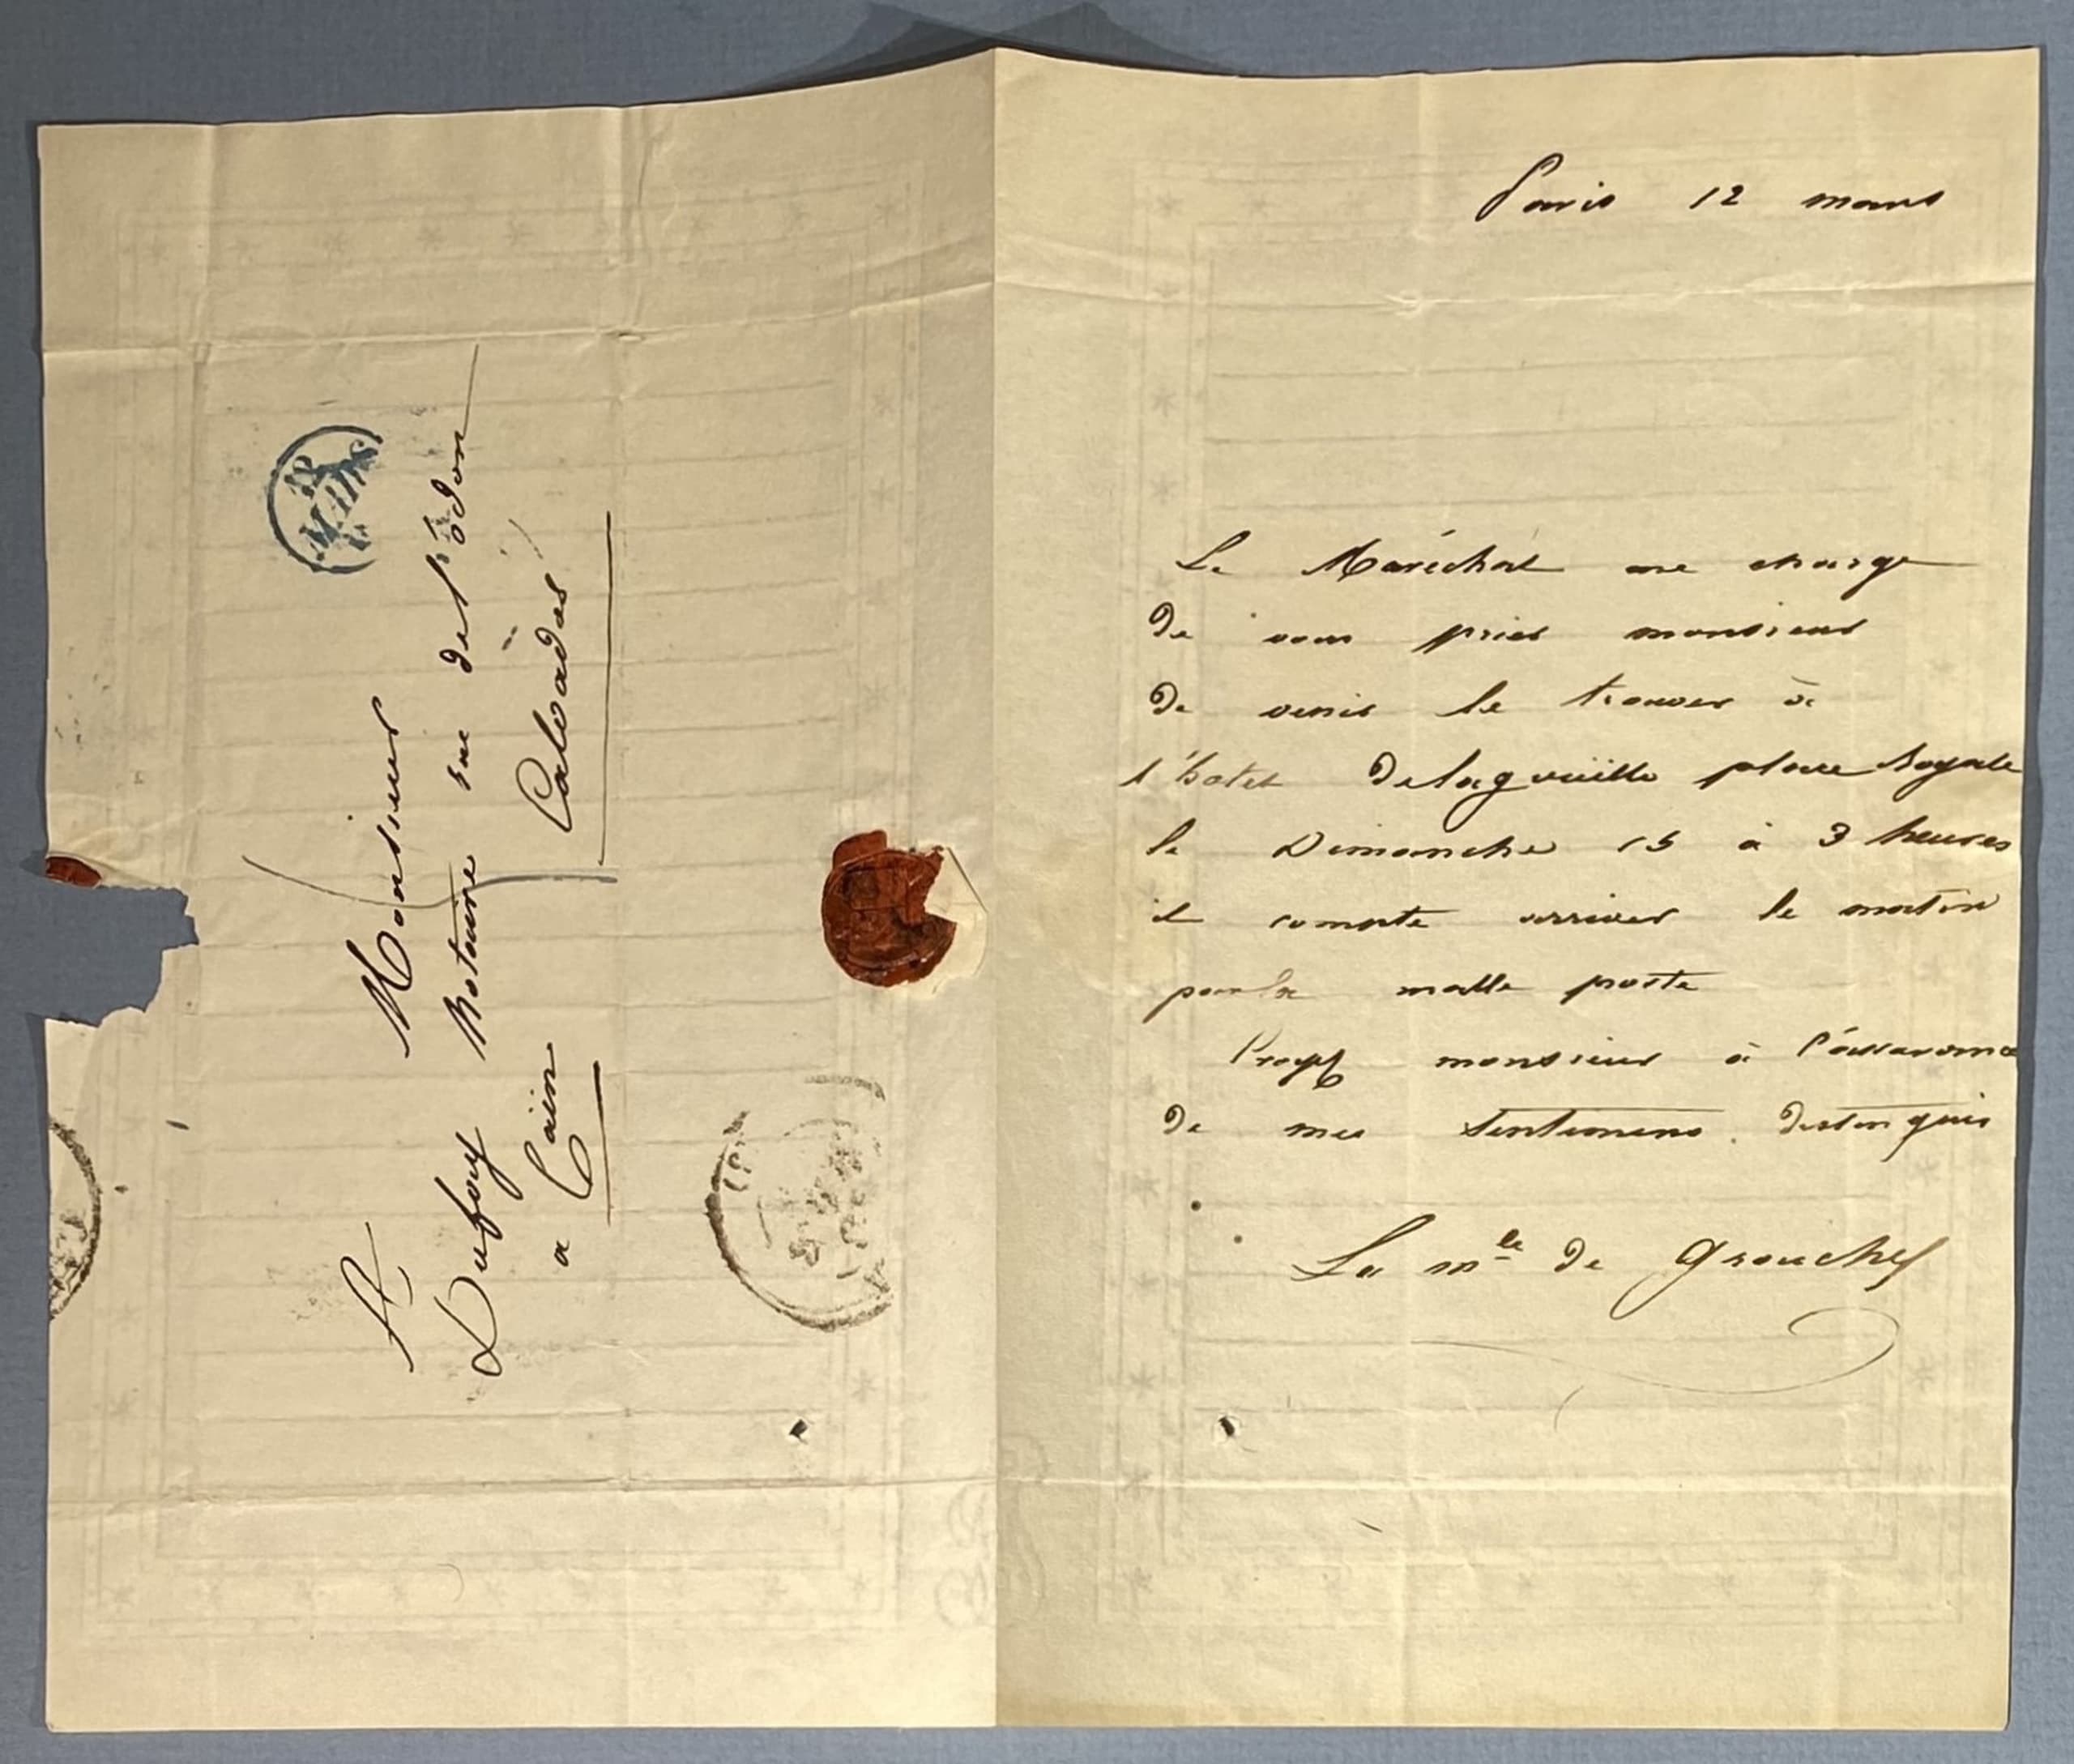 Paris 12 mars
Le Maréchal me charge
de vous prier monsieur
de venir le trouver à
l'hotel delagviille place Royale
le Dimanche 15 à 3 heures
il compte arriver le matin
par la malle poste
monsieur à l'assurance
de mes sentimens distingués
La mle de Grouchy
A Monsieur
Dufouy Notaire rue de l'Odon
a Caën Calvados
12
MARS